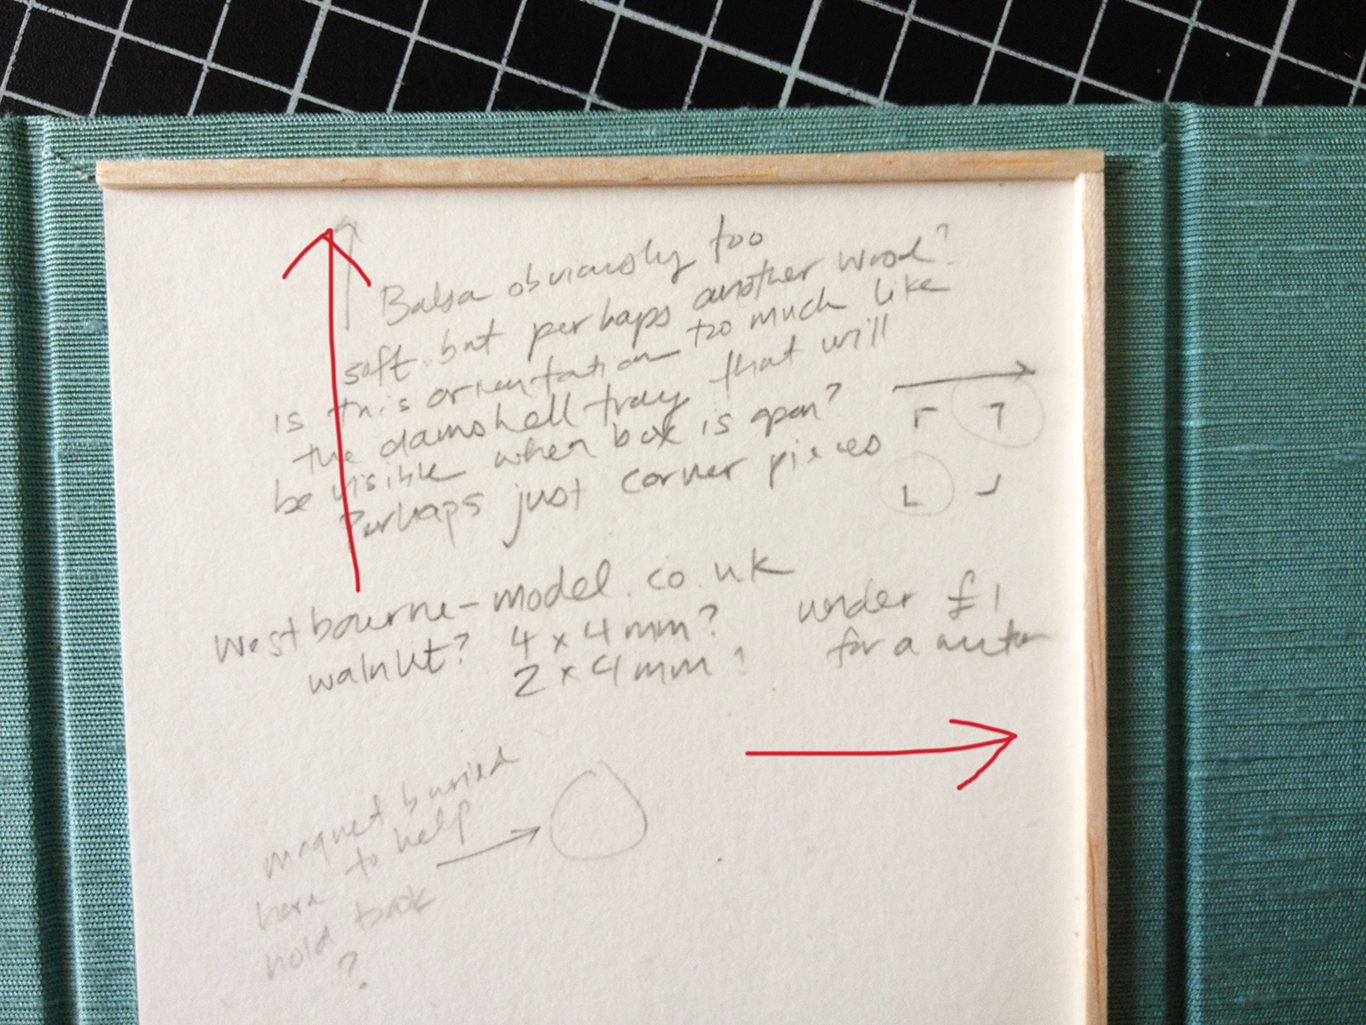 Balsa obviously too
soft. but perhaps another wood?
is this orientation too much like
the clamshell tray that will
be visible when box is open?
Perhaps just corner pieces
westbourne-model.co.uk
walnut? 4 x 4 mm? under £1
2 x 4 mm? for a
magnet buried
here to help
hold book
?